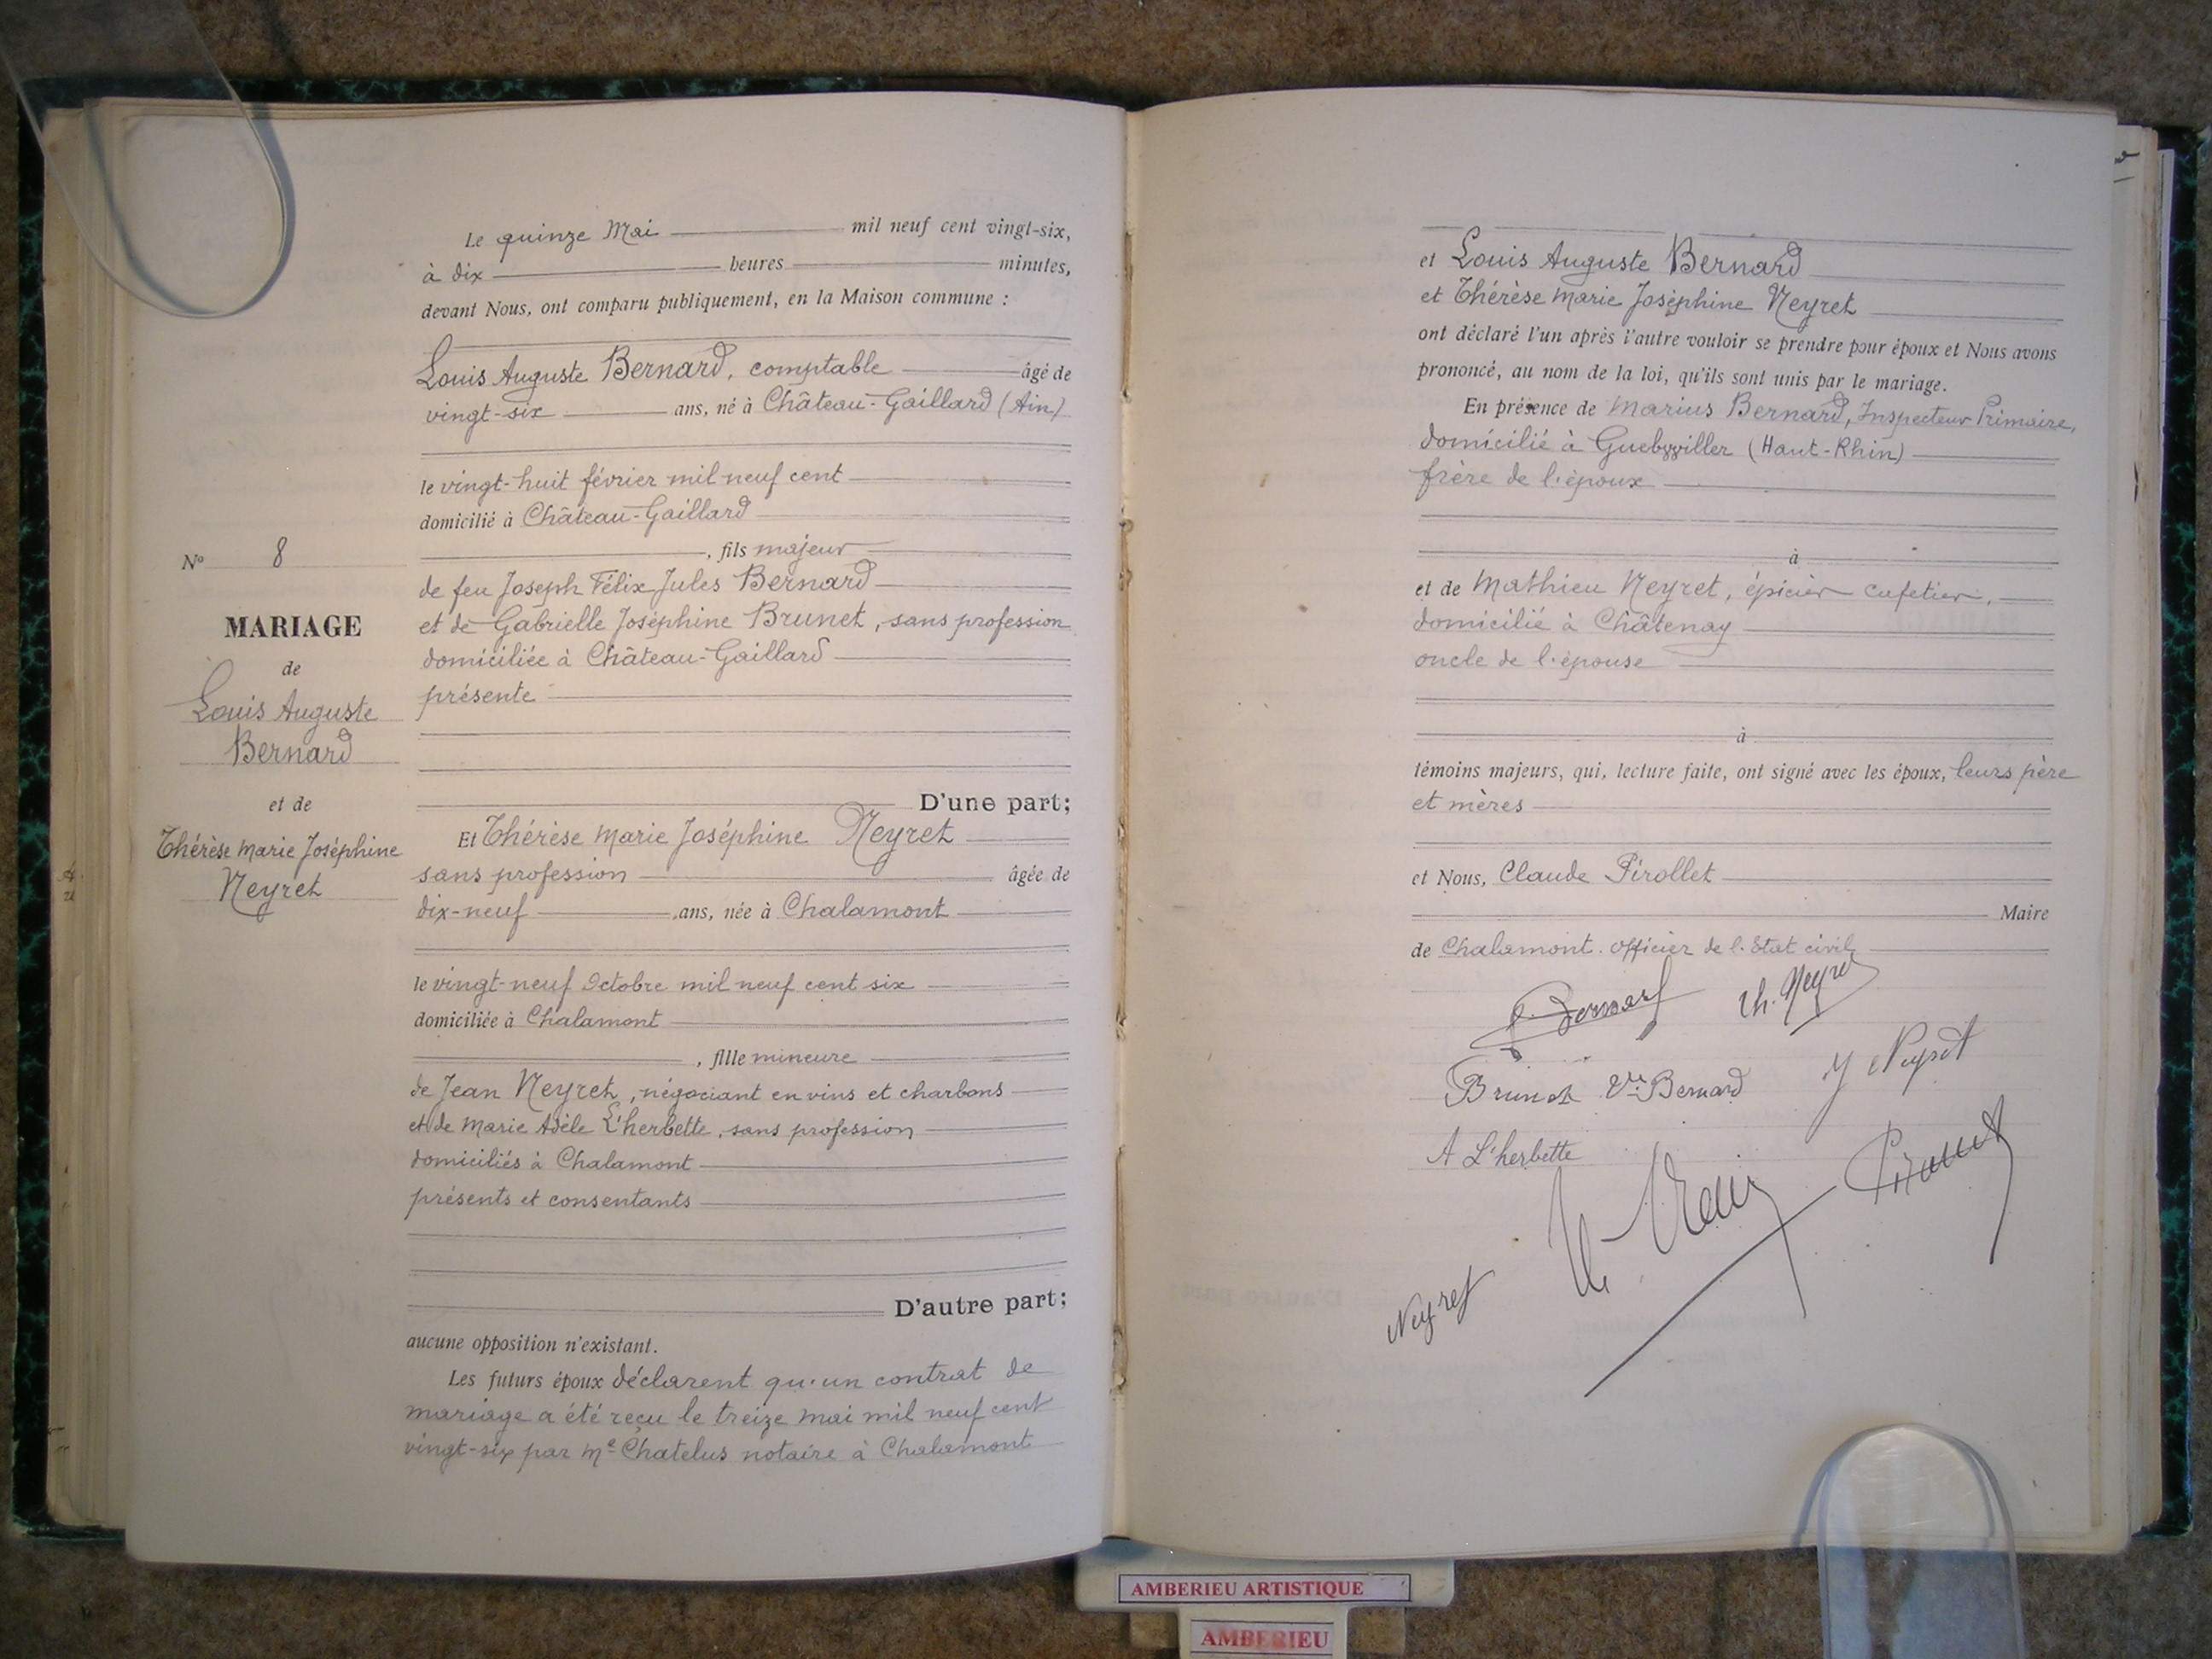 Le quinze Mai mil neuf cent vingt-six,
à dix heures minutes,
devant Nous, ont comparu publiquement, en la Maison commune :
Louis Auguste Bernard, comptable âgé de
vingt-six ans, né à Château-Gaillard (Ain)
le vingt-huit février mil neuf cent
domicilié à Château-Gaillard
, fils majeur
de feu Joseph Félix Jules Bernard
et de Gabrielle Joséphine Brunet, sans profession
domiciliée à Château-Gaillard
présente
D'une part;
Et Thérèse Marie Joséphine Neyret
sans profession âgée de
dix-neuf ans, née à Chalamont
le vingt-neuf Octobre mil neuf cent six
domiciliée à Chalamont
, fille mineure
de Jean Neyret, négociant en vins et charbons
et de Marie Adèle L'herbette, sans profession
domiciliés à Chalamont
présents et consentants
D'autre part;
aucune opposition n'existant.
Les futurs époux déclarent qu'un contrat de
mariage a été reçu le treize mai mil neuf cent
vingt-six par Me Chatelus notaire à Chalamont
No 8
MARIAGE
de
Louis Auguste
Bernard
et de
Thérèse Marie Joséphine
Neyret
et Louis Auguste Bernard
et Thérèse Marie Joséphine Neyret
ont déclaré l'un après l'autre vouloir se prendre pour époux et Nous avons
prononcé, au nom de la loi, qu'ils sont unis par le mariage.
En présence de Marius Bernard, Inspecteur Primaire,
domicilié à Guebwiller (Haut-Rhin)
frère de l'époux
à
et de Mathieu Neyret, épicier cafetier,
domicilié à Châtenay
oncle de l'épouse
à
témoins majeurs, qui, lecture faite, ont signé avec les époux, leurs père
et mères
et Nous, Claude Pirollet
Maire
de Chalamont. Officier de l'Etat civil
Bernard Th. Neyret
Brunet Vve Bernard J Neyret
A L'herbette
Neyret
AMBERIEU ARTISTIQUE
AMBERIEU